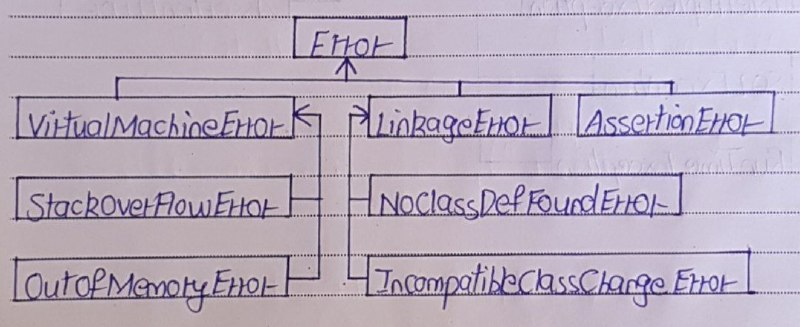 Error
VirtualMachineError LinkageError AssertionError
StackOverFlowError NoClassDefFoundError
OutOfMemoryError IncompatibleClassChangeError